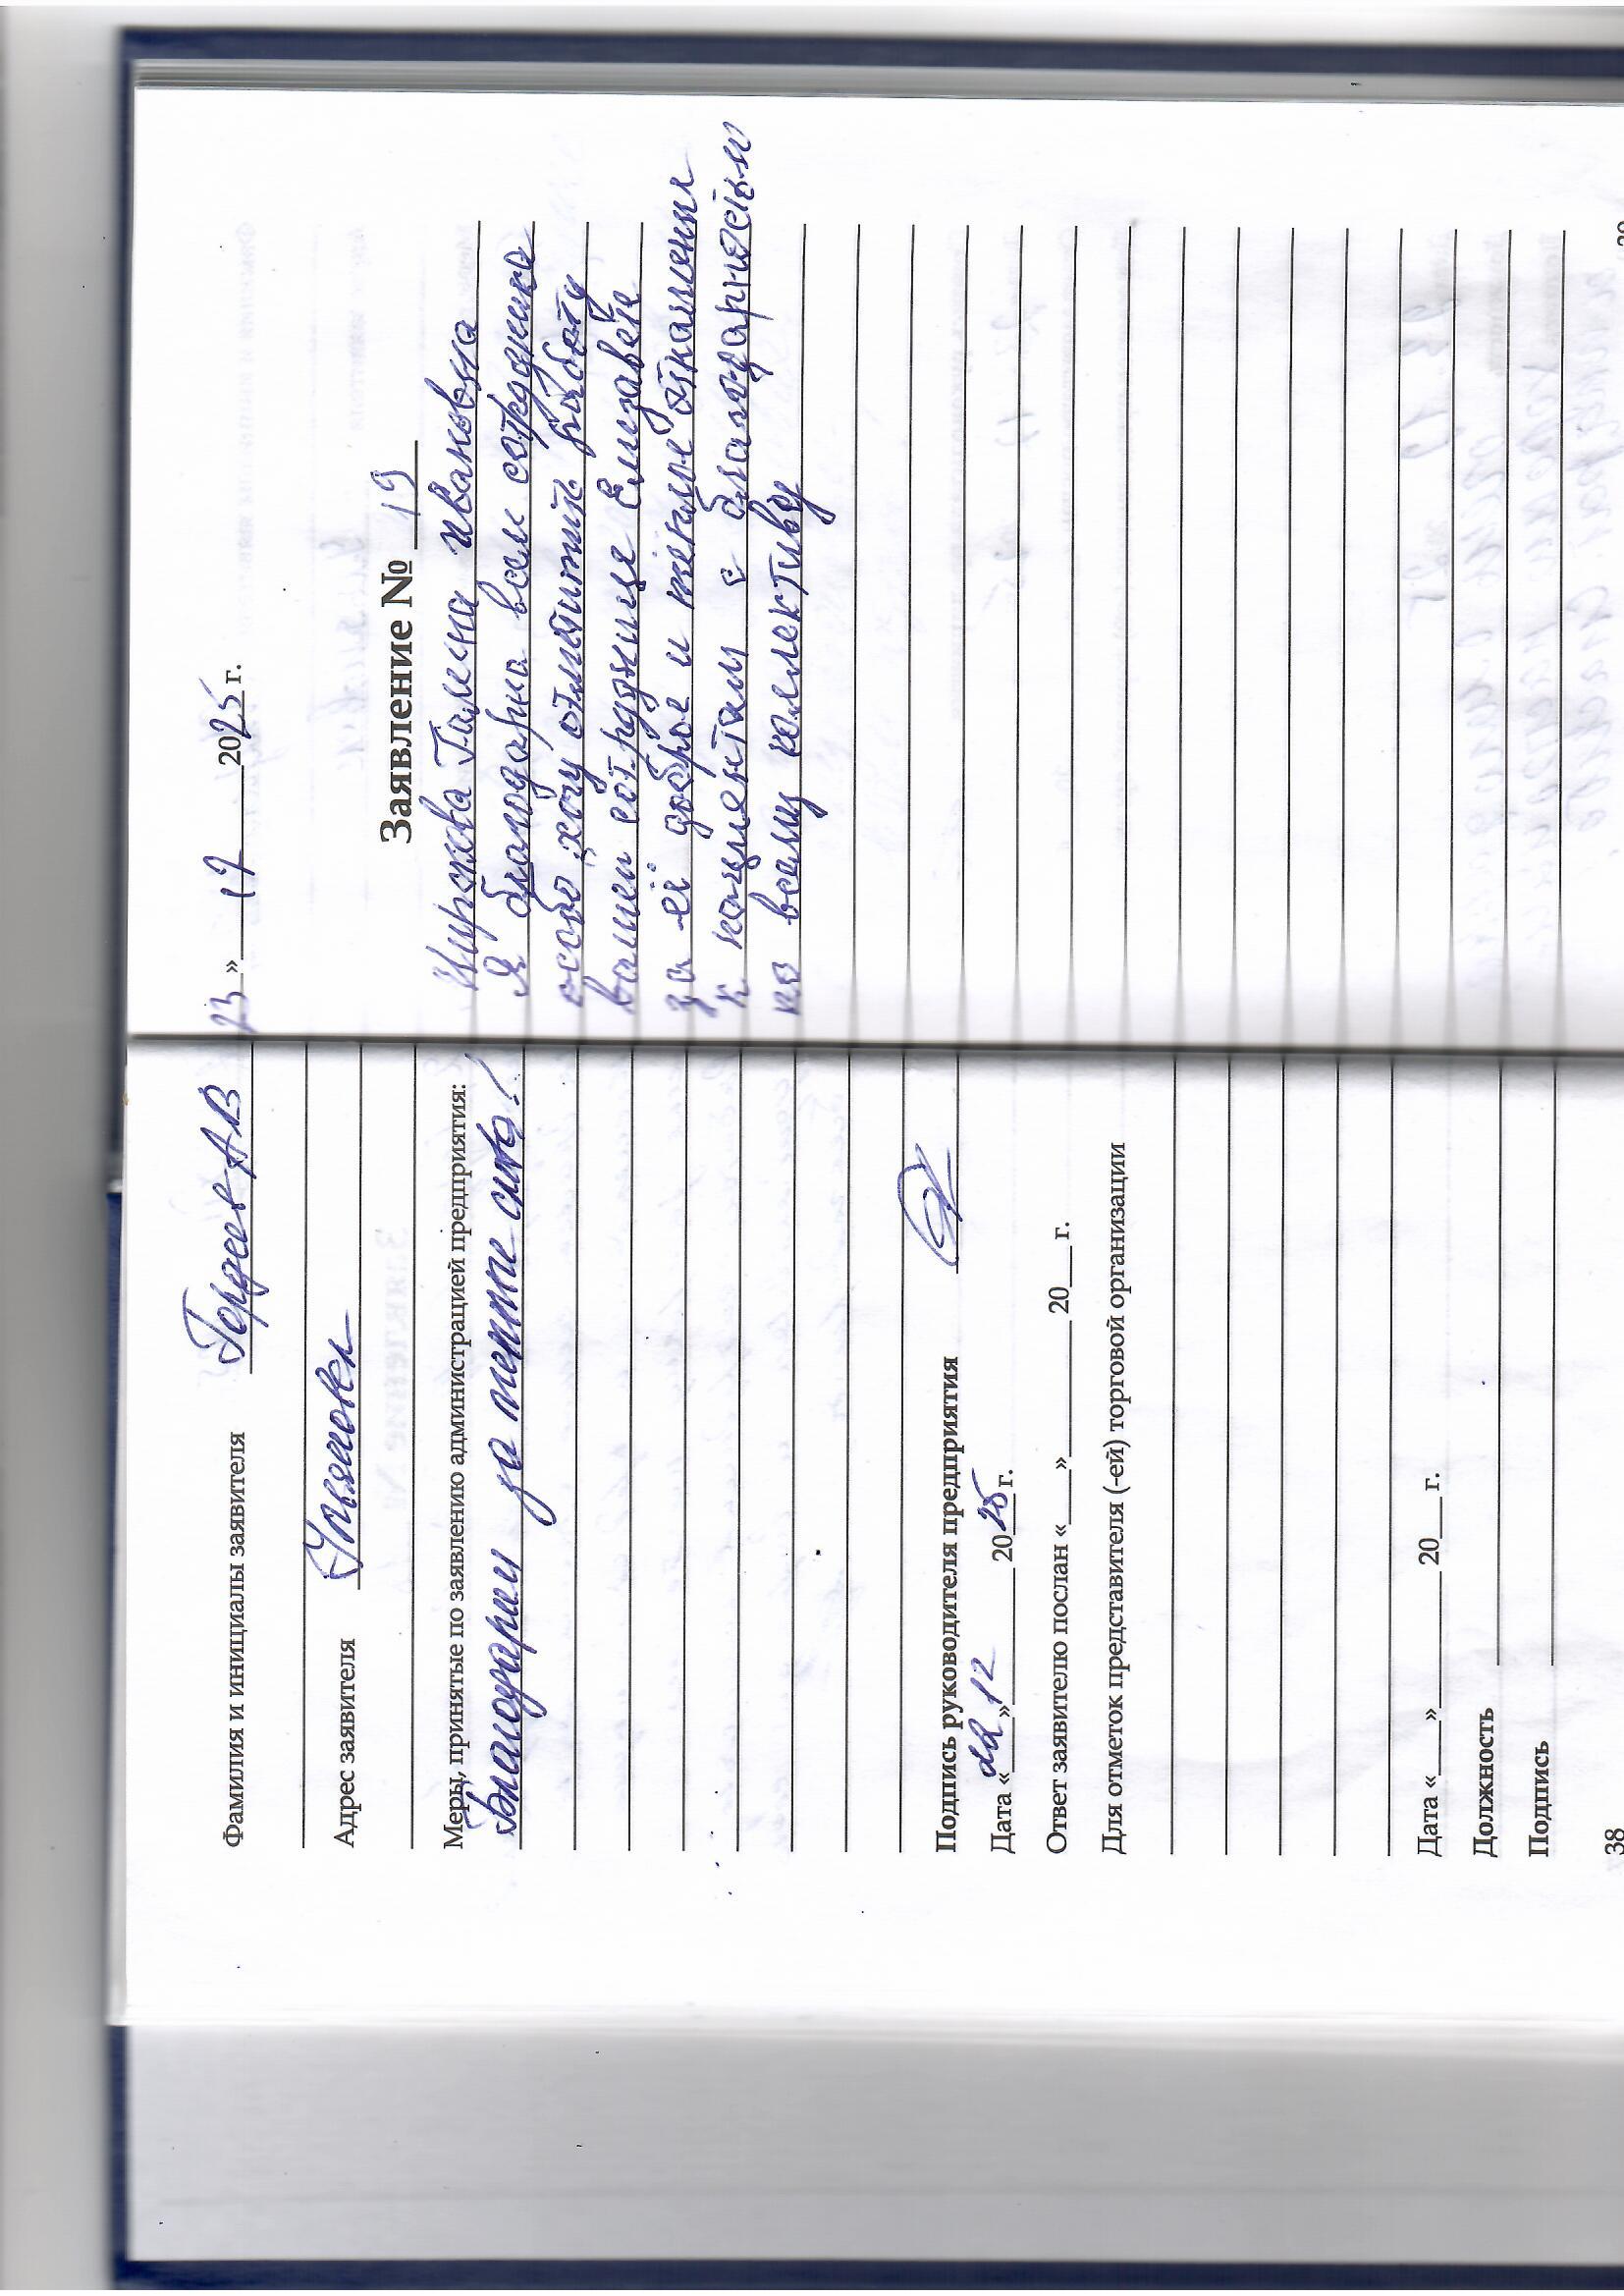 Фамилия и инициалы заявителя Гордеев АВ
Адрес заявителя Ульяновск
Меры, принятые по заявлению администрацией предприятия:
Благодарим за теплые слова!
Подпись руководителя предприятия
Дата «22» 12 2025 г.
Ответ заявителю послан «___»________20__г.
Для отметок представителя (-ей) торговой организации
Дата «___»________20__г.
Должность
Подпись
38
23 » 12 2025 г.
Заявление № 19
Галина Ивановна
Я благодарна всем сотрудника
особо хочу отметить работу
вашей сотруднице Елизавете
за её доброе и теплое отношения
к пациентам с благодарностью
ко всему коллективу